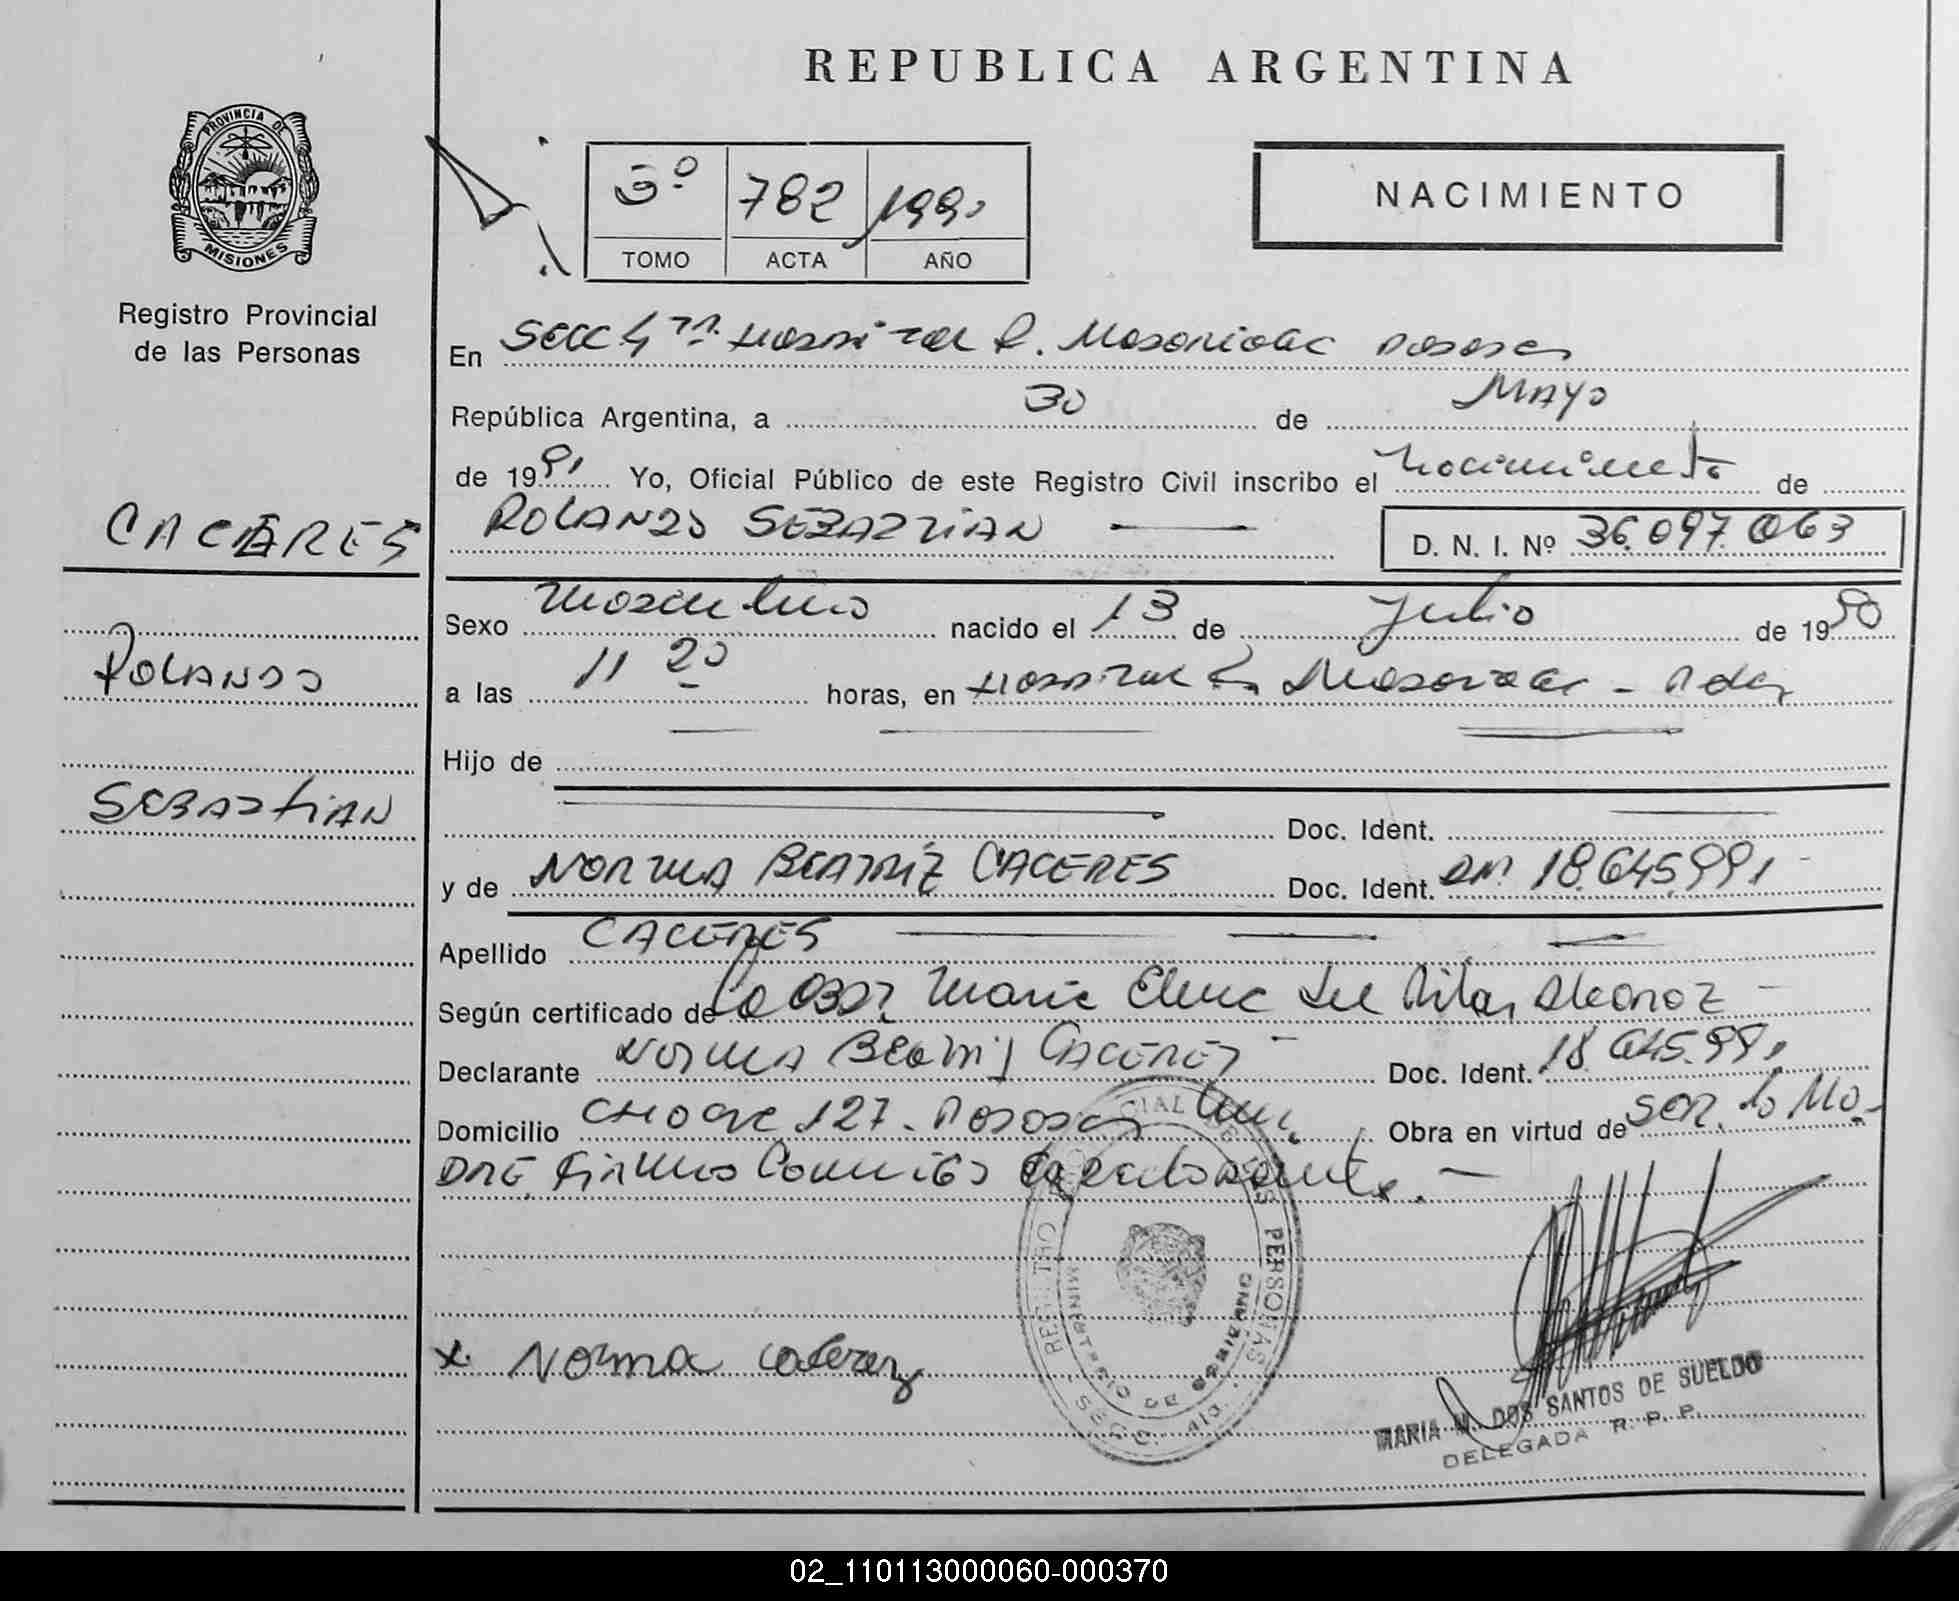 REPUBLICA ARGENTINA
PROVINCIA DE
MISIONES
Registro Provincial
de las Personas
3º 782 1990
TOMO ACTA AÑO
NACIMIENTO
En Secc 4ta. Hospital R. Madariaga Posadas
República Argentina, a 30 de MAYO
de 1991 Yo, Oficial Público de este Registro Civil inscribo el nacimiento de
CACERES
ROLANDO SEBASTIAN D. N. I. Nº 36.097.063
Sexo masculino nacido el 13 de Julio de 1990
ROLANDO
a las 11 20 horas, en Hospital R. Madariaga - Pdas
Hijo de
SEBASTIAN
Doc. Ident.
y de NORMA BEATRIZ CACERES Doc. Ident. DNI 18.645.991
Apellido CACERES
Según certificado de la Obst. Maria Elena del Pilar
Declarante NORMA Beatriz CACERES Doc. Ident. 18.645.991
Domicilio 127 - Posadas Obra en virtud de ser la MA-
DRE. Firma
REGISTRO PERSONAS
MINISTERIO DE GOBIERNO
SECC. 4ta.
x Norma caceres
MARIA M. DOS SANTOS DE SUELDO
DELEGADA R. P. P.
02_110113000060-000370